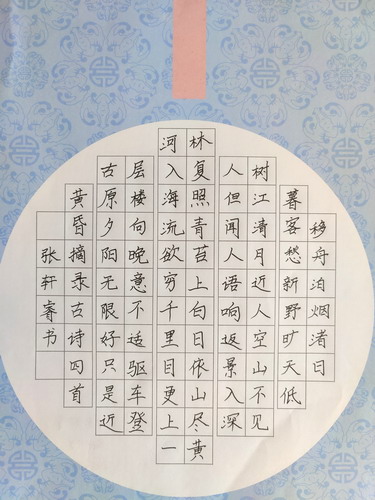 移舟泊烟渚日
暮客愁新野旷天低
树江清月近人空山不见
人但闻人语响返景入深
林复照青苔上白日依山尽黄
河入海流欲穷千里目更上一
层楼向晚意不适驱车登
古原夕阳无限好只是近
黄昏摘录古诗四首
张轩睿书